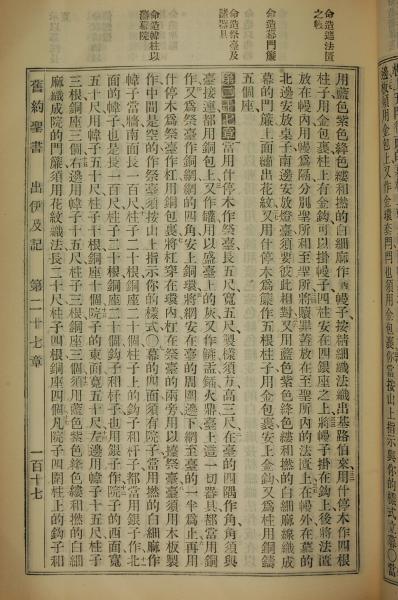 命造遮法匱
之幔
命造幕門簾
命造祭臺及
諸器具
命造幃柱以
用藍色紫色絳色縷和撚的白細麻作幔子按精細織法織出基路伯來用什停木作四根
柱子用金包裹柱上有金鈎可以掛幔子四柱安在四銀座之上將幔子掛在鈎上後將法匱
放在幔內用幔爲隔分別聖所和至聖所將贖罪蓋放在至聖所內的法匱上在幔外在幕的
北邊安放桌子南邊安放燈臺須要彼此相對又用藍色紫色絳色縷和撚的白細麻線織成
幕的門簾上面繡出花紋又用什停木爲簾作五根柱子用金包裹安上金鈎又爲柱用銅鑄
五個座
第二十七章當用什停木作祭臺長五尺寬五尺製樣須方高三尺在臺的四隅作角角須與
臺接連都用銅包上又作鑵用以盛臺上的灰又作鏟盂鍤火鼎臺上這一切器具都當用銅
作又爲祭臺作銅網網的四角安上銅環將網安在臺的周圍邊下網至臺的一半爲止再用
什停木爲祭臺作杠用銅包裹將杠穿在環內杠在祭臺的兩旁用以擡祭臺祭臺須用木板製
作中間是空的作祭臺須按山上指示你的樣式〇幕的四面須有院子當用撚的白細麻作
幃子當牆南面長一百尺柱子二十根銅座二十個柱子上的鈎子和杆子都當用銀子作北
面的幃子也是長一百尺柱子二十根銅座二十個鈎子和杆子也用銀子作院子的西面寬
五十尺用幃子五十尺柱子十根銅座十個院子的東面寬五十尺左邊用幃子十五尺柱子
三根銅座三個右邊用幃子十五尺柱子三根銅座三個須用藍色紫色絳色縷和撚的白細
麻織成院的門簾須用花紋織法長二十尺柱子四根銅座四個凡院子四圍柱上的鈎子和
舊約聖書 出伊及記 第二十七章 一百十七